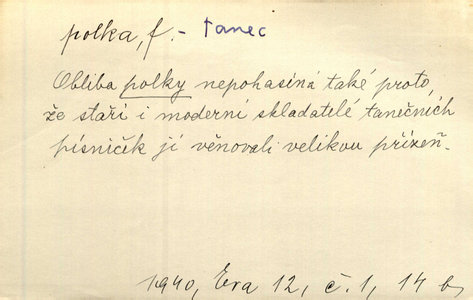 polka, f. - tanec
Obliba polky nepohasíná také proto,
že staří i moderní skladatelé tanečních
písniček jí věnovali velikou přízeň.
1940, Eva 12, č. 1, 14 b